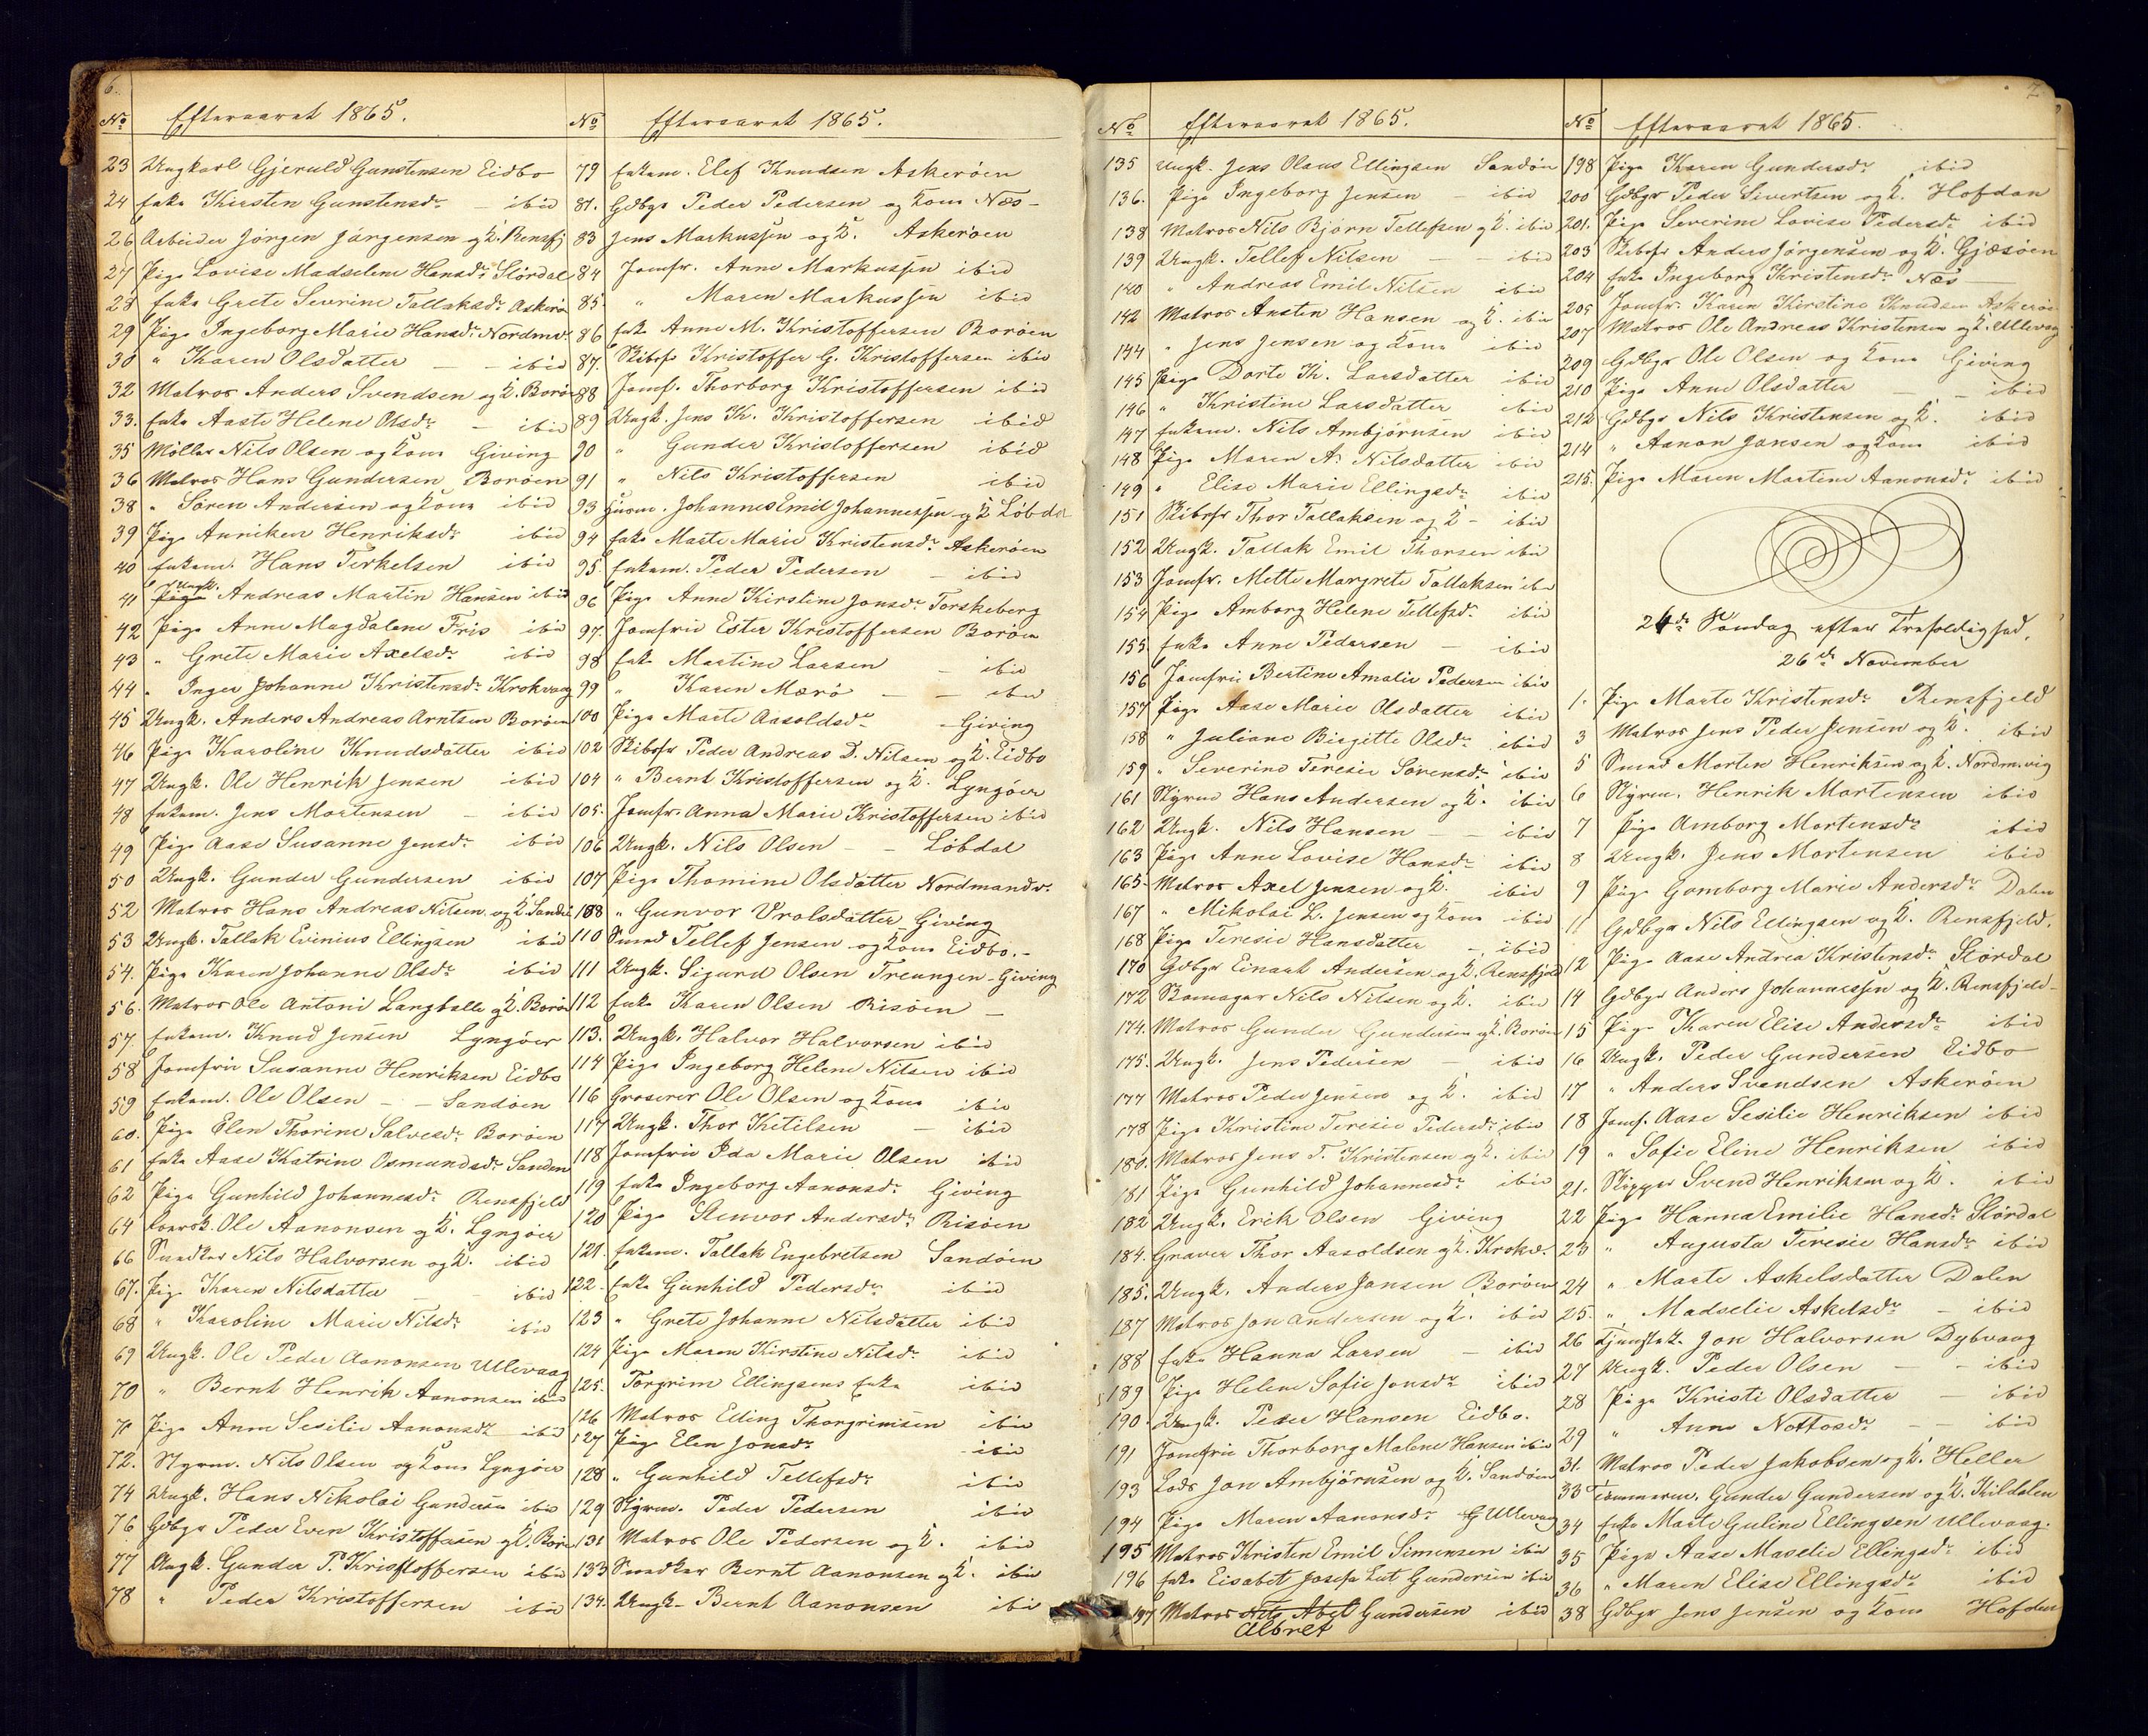 6.
No Efteraaret 1865.
23 Ungkarl Gjeruld Gunstensen Eidbo
24 Enke Kirsten Gunstensdr — ibid
26 Arbeider Jörgen Jörgensen og K. Rensfj
27 Pige Lovise Madselene Hansdr Stördal
28 Enke Grete Severine Tallaksdr Askerö
29 Pige Ingeborg Marie Hansdr Nordmv.
30 " Karen Olsdatter — — ibid
32 Matros Anders Svendsen og K. Borö
33. Enke Aaste Helene Olsdr — ibid
35 Möller Nils Olsen og Kone Giving
36 Matros Hans Gundersen Boröen
38 " Sören Andersen og Kone ibid
39 Pige Anniken Henriksdr ibid
40 Enkem. Hans Terkelsen ibid
41 Ungk. Andreas Martin Hansen ibid
42 Pige Anne Magdalene Friis ibid
43 " Grete Marie Axelsdr ibid
44 " Inger Johanne Kristensdr Krokvaag
45 Ungk. Anders Andreas Arntsen Boröen
46 Pige Karoline Knudsdatter ibid
47 Ungk. Ole Henrik Jensen ibid
48 Enkem. Jens Mortensen — ibid
49 Pige Aase Susanne Jensdr ibid
50 Ungk. Gunder Gundersen ibid
52 Matros Hans Andreas Nilsen og K. Sandö
53 Ungk. Tallak Evenius Ellingsen ibid
54. Pige Karen Johanne Olsdr ibid
56. Matros Ole Antoni Langballe og K. Borö
57 Enkem. Knud Jensen Lyngöer
58 Jomfru Susanne Henriksen Eidbo
59 Enkem. Ole Olsen — — Sandöen
60. Pige Elen Thorine Salvesdr Boröen
61 Enke Aase Katrine Osmundsdr Sanden
62 Pige Gunhild Johannesdr Rensfjeld
64 Ole Aanonsen og K. Lyngöer
66 Snedker Nils Halvorsen og K. ibid
67. Pige Karen Nilsdatter — ibid
68 " Karoline Marie Nilsdr ibid
69 Ungk. Ole Peder Aanonsen Ullevaag
70 " Bernt Henrik Aanonsen ibid
71 Pige Anne Sesilie Aanonsdr ibid
72. Styrm. Nils Olsen og Kone Lyngöer
74 Ungk. Hans Nikolai Gundersen ibid
76 Gdbgr Peder Even Kristoffersen og K. Borö
77 Ungk. Gunder P. Kristoffersen ibid
78 " Peder Kristoffersen ibid
No Efteraaret 1865.
79 Enkem. Elef Knudsen Askeröen
81. Gdbgr Peder Pedersen og Kone Næs—
83 Jens Markussen og K. Askeröen
84 Jomfr. Anne Markussen ibid
85. " Maren Markussen ibid
86 Enke Anne M. Kristoffersen Boröen
87. Skibsfr Kristoffer G. Kristoffersen ibid
88 Jomf. Thorborg Kristoffersen ibid
89 Ungk. Jens K. Kristoffersen ibid
90 " Gunder Kristoffersen ibid
91 " Nils Kristoffersen ibid
93 Husm. Johannes Emil Johannessen og K Löbdal
94 Enke Marte Marie Kristensdr Askeröen
95. Enkem. Peder Pedersen — ibid
96 Pige Anne Kirstine Jonsdr Torskeberg
97. Jomfru Ester Kristoffersen Boröen
98 Enke Martine Larsen — ibid
99 " Karen Mærö — — ibid
100 Pige Marte Aasoldsdr Giving
102 Skibsfr Peder Andreas D. Nilsen og K. Eidbo
104 " Bernt Kristoffersen og K. Lyngöer
105. Jomfr. Anna Marie Kristoffersen ibid
106 Ungk. Nils Olsen — — Löbdal
107 Pige Thomine Olsdatter Nordmandv.
108 " Gunvor Vrolsdatter Giving
110 Smed Tellef Jensen og Kone Eidbo.—
111 Ungk. Sigurd Olsen Treungen - Giving
112 Enke Karen Olsen Risöen —
113. Ungk. Halvor Halvorsen ibid
114 Pige Ingeborg Helene Nilsen ibid
116 Groserer Ole Olsen og Kone ibid
117 Ungk. Thor Ketilsen — ibid
118 Jomfru Ida Marie Olsen ibid
119 Enke Ingeborg Aanonsdr Giving
120 Pige Stenvor Andersdr Risöen
121. Enkem. Tallak Engebretsen Sandöen
122. Enke Gunhild Pedersdr ibid
123 " Grete Johanne Nilsdatter ibid
124 Pige Maren Kirstine Nilsdr ibid
125. Torgrim Ellingsens Enke ibid
126 Matros Elling Thorgrimsen ibid
127 Pige Elen Jonsdr — ibid
128 " Gunhild Tellefsdr ibid
129 Styrm. Peder Pedersen ibid
131 Matros Ole Pedersen og K. ibid
133 Snedker Bernt Aanonsen og K. ibid
134. Ungk. Bernt Aanonsen ibid
7
No Efteraaret 1865.
135 Ungk. Jens Olaus Ellingsen Sandön
136. Pige Ingeborg Jensen — ibid
138 Matros Nils Bjorn Tellefsen og K. ibid
139 Ungk. Tellef Nilsen — — ibid
140 " Andreas Emil Nilsen ibid
142 Matros Austen Hansen og K. ibid
144 " Jens Jensen og Kone ibid
145 Pige Dorte K. Larsdatter ibid
146 " Kristine Larsdatter ibid
147 Enkem. Nils Ambjörnsen ibid
148 Pige Maren A. Nilsdatter ibid
149 " Elise Marie Ellingsdr ibid
151 Skibsfr Thor Tallaksen og K — ibid
152 Ungk. Tallak Emil Thorsen ibid
153 Jomfr. Mette Margrete Tallaksen ibd
154 Pige Amborg Helene Tellefsdr ibid
155. Enke Anne Pedersen — ibid
156 Jomfru Bertine Amalie Pedersen ibid
157 Pige Aase Marie Olsdatter ibid
158 " Juliane Birgitte Olsdr ibid
159 " Severine Teresie Sörensdr ibid
161 Styrm Hans Andersen og K. ibid
162 Ungk. Nils Hansen — — ibid
163 Pige Anne Lovise Hansdr ibid
165. Matros Axel Jensen og K. ibid
167 " Mikolai L. Jensen og Kone ibid
168 Pige Teresie Hansdatter — ibid
170 Gdbgr Einart Andersen og K. Rensfjeld
172 Skomager Nils Nilsen og K. ibid
174. Matros Gunder Gundersen og K. Boröen
175. Ungk. Jens Pedersen — ibid
177 Matros Peder Jensen og K. ibid
178 Pige Kristine Teresie Pedersdr ibid
180. Matros Jens T. Kristensen og K. ibid
181 Pige Gunhild Johannesdr ibid
182 Ungk. Erik Olsen Giving
184. Graver Thor Aasoldsen og K. Krokv.
185. Ungk. Anders Jansen Boröen
187 Matros Jon Andersen og K. ibid
188 Enke Hanna Larsen — ibid
189 Pige Helene Sofie Jonsdr ibid
190. Ungk. Peder Hansen Eidbo.
191 Jomfru Thorborg Malene Hansen ibid
193 Lods Jon Ambjörnsen og K. Sandöen
194 Pige Maren Aanonsdr Ullevag
195 Matros Kristen Emil Simensen ibid
196 Enke Eisabet Josefa Lut Gundersen ibid
197 Matros Nils Abel Gundersen ibid
Albret
No Efteraaret 1865.
198 Pige Karen Gundersdr ibid
200 Gdbgr Peder Sivertsen og K. Hofdan
201. Pige Severine Lovise Pedersdr ibid
203 Skibsfr Anders Jörgensen og K. Gjæsöen
204 Enke Ingeborg Kristensdr Næs —
205 Jomfr. Karen Kirstine Knudsen Askeröe
207 Matros Ole Andreas Kristensen og K. Ullevag
209 Gdbgr Ole Olsen og Kone Giving
210 Pige Anne Olsdatter — — ibid
212 Gdbgr Nils Kristensen og K. ibid
214 " Aanon Jansen og Kone ibid
215. Pige Maren Martine Aanonsdr ibid
24de Söndag efter Trefoldighed.
26de November
1. Pige Marte Kristensdr Rensfjeld
3 Matros Jens Peder Jensen og K. ibid
5 Smed Morten Henriksen og K. Nordm.vig
6 Styrm. Henrik Mortensen ibid
7 Pige Amborg Mortensdr ibid
8 Ungk. Jens Mortensen ibid
9 Pige Gomborg Marie Andersdr Dalen
11 Gdbgr Nils Ellingsen og K. Rensfjeld.
12 Pige Aase Andrea Kristensdr Stördal
14 Gdbgr Anders Johannessen og K. Rensfjeld—
15 Pige Karen Elise Andersdr ibid
16 Ungk. Peder Gundersen Eidbo
17 " Anders Svendsen Askeröen
18 Jomf. Aase Sesilie Henriksen ibid
19 " Sofie Eline Henriksen ibid
21. Skipper Svend Henriksen og K. ibid
22 Pige Hanna Emilie Hansdr Stördal
23 " Augusta Teresie Hansdr ibid
24 " Marte Askelsdatter Dalen
25. " Madselie Askelsdr — ibid
26 Jon Halvorsen Dybvaag
27 Ungk. Peder Olsen — — ibid
28 Pige Kristi Olsdatter — ibid
29 " Anne Nottosdr — — ibid
31. Matros Peder Jakobsen og K. Heller
33 Tömmerm. Gunder Gundersen og K. Kildalen
34 Enke Marte Guline Ellingsen Ullevaag.
35 Pige Aase Maselie Ellingsdr ibid
36 " Maren Elise Ellingsdr ibid
38 Gdbgr Jens Jensen og Kone Hofdan